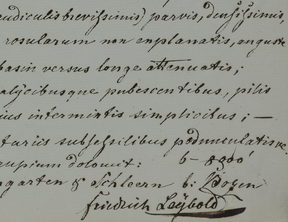 udiculis brevissimis) parvis, densissimis,
rosularum non explanatis, anguste
basin versus longe attenuatis,
alycibusque pubescentibus, pilis
ius intermixtis simplicibus; —
turis subsessilibus pedunculatisve.
cupium dolomit: 6–8300'
garten & Schlern b: Bozen
Friedrich Leybold